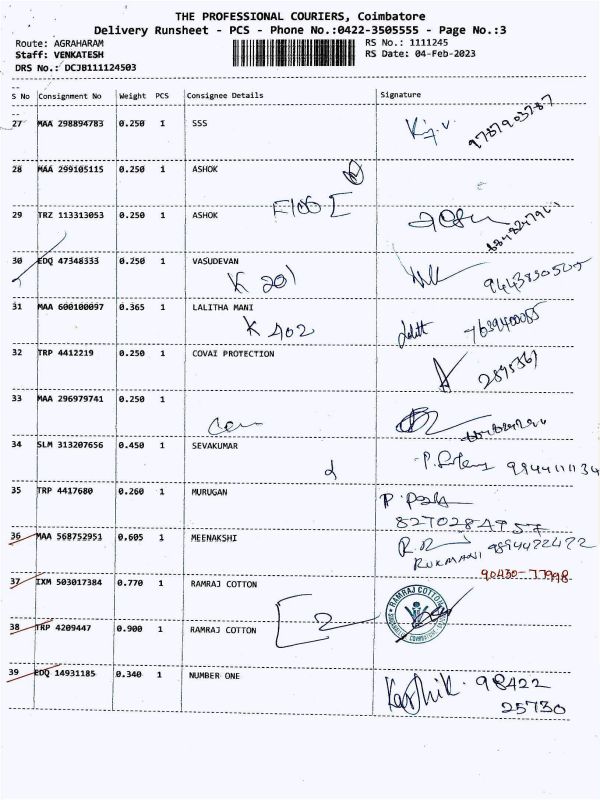 THE PROFESSIONAL COURIERS, Coimbatore
Delivery Runsheet - PCS - Phone No.:0422-3505555 - Page No.:3
Route: AGRAHARAM RS No.: 1111245
Staff: VENKATESH RS Date: 04-Feb-2023
DRS No.: DCJB111124503
S No Consignment No Weight PCS Consignee Details Signature
27 MAA 298894783 0.250 1 SSS
9787903787
28 MAA 299105115 0.250 1 ASHOK
29 TRZ 113313053 0.250 1 ASHOK
F106
30 EDQ 47348333 0.250 1 VASUDEVAN
K 201
31 MAA 600100097 0.365 1 LALITHA MANI
K 402 7639400085
32 TRP 4412219 0.250 1 COVAI PROTECTION
33 MAA 296979741 0.250 1
34 SLM 313207656 0.450 1 SEVAKUMAR
9944111134
35 TRP 4417680 0.260 1 MURUGAN
8270284957
36 MAA 568752951 0.605 1 MEENAKSHI
RUKMANI 9894422422
90430-77998
37 IXM 503017384 0.770 1 RAMRAJ COTTON
RAMRAJ COTTON
38 TRP 4209447 0.900 1 RAMRAJ COTTON
2
39 EDQ 14931185 0.340 1 NUMBER ONE
Karthik. 98422
25730